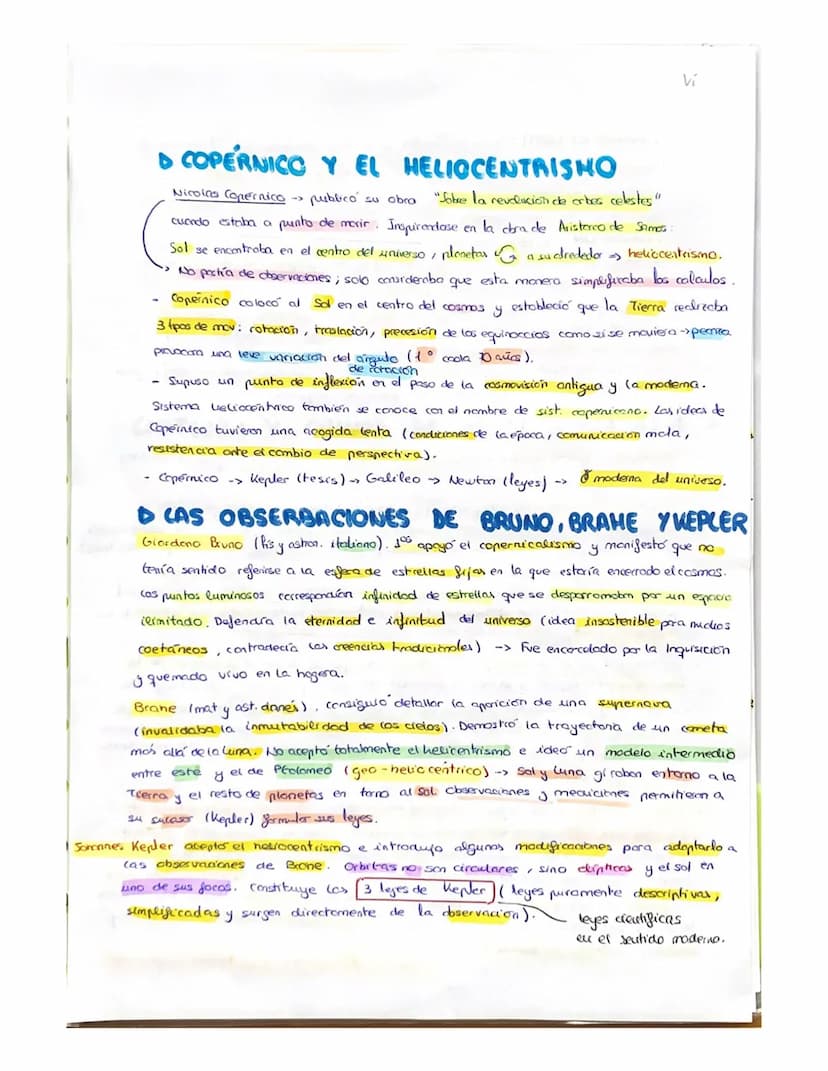 Vi
COPÉRNICO Y EL HELIOCENTRISMO
Nicolas Copérnico -> publicó su obra "Sobre la revolución de orbes celestes"
cuando estaba a punto de morir. Inspirandose en la obra de Aristarco de Samos:
Sol se encontraba en el centro del universo, planetas a su alrededor => heliocentrismo.
No partía de observaciones; solo consideraba que esta manera simplificaba los calculos.
- Copérnico colocó al Sol en el centro del cosmos y estableció que la Tierra realizaba
3 tipos de mov: rotación, traslación, precesión de los equinoccios como si se moviera -> peonza
provocan una leve variación del ángulo (1° cada 70 años).
de rotación
- Supuso un punto de inflexión en el paso de la cosmovisión antigua y la moderna.
Sistema heliocéntrico también se conoce con el nombre de sist. copernicano. Las ideas de
Copérnico tuvieron una acogida lenta (condiciones de la época, comunicación mala,
resistencia ante el cambio de perspectiva).
- Copérnico -> Kepler (tesis) -> Galileo -> Newton (leyes) -> moderna del universo.
LAS OBSERBACIONES DE BRUNO, BRAHE Y KEPLER
Giordano Bruno (fís y astron. italiano). 1º apoyó el copernicalismo y manifestó que no
tenía sentido referirse a la esfera de estrellas fijas en la que estaría encerrado el cosmos.
Los puntos luminosos correspondían infinidad de estrellas que se desparramaban por un espacio
ilimitado. Defendía la eternidad e infinitud del universo (idea insostenible para muchos
coetáneos, contradecía las creencias tradicionales) -> Fue encarcelado por la Inquisición
y quemado vivo en la hogera.
Brahe (mat y ast. danés). consiguió detallar la aparición de una supernova
(invalidaba la inmutabilidad de los cielos). Demostró la trayectoria de un cometa
más allá de la luna. No aceptó totalmente el helicentrismo e ideó un modelo intermedio
entre este y el de Ptolomeo (geo-heliocéntrico) -> Sol y luna giraban entorno a la
Tierra y el resto de planetas en torno al Sol. Observaciones y mediciones permitieron a
su sucesor (Kepler) formular sus leyes.
Johannes Kepler aceptó el heliocentrismo e introdujo algunas modificaciones para adaptarlo a
las observaciones de Brahe. Orbitas no son circulares, sino elípticas y el sol en
uno de sus focos. Constituye las 3 leyes de Kepler (leyes puramente descriptivas,
simplificadas y surgen directamente de la observación).
leyes científicas
en el sentido moderno.